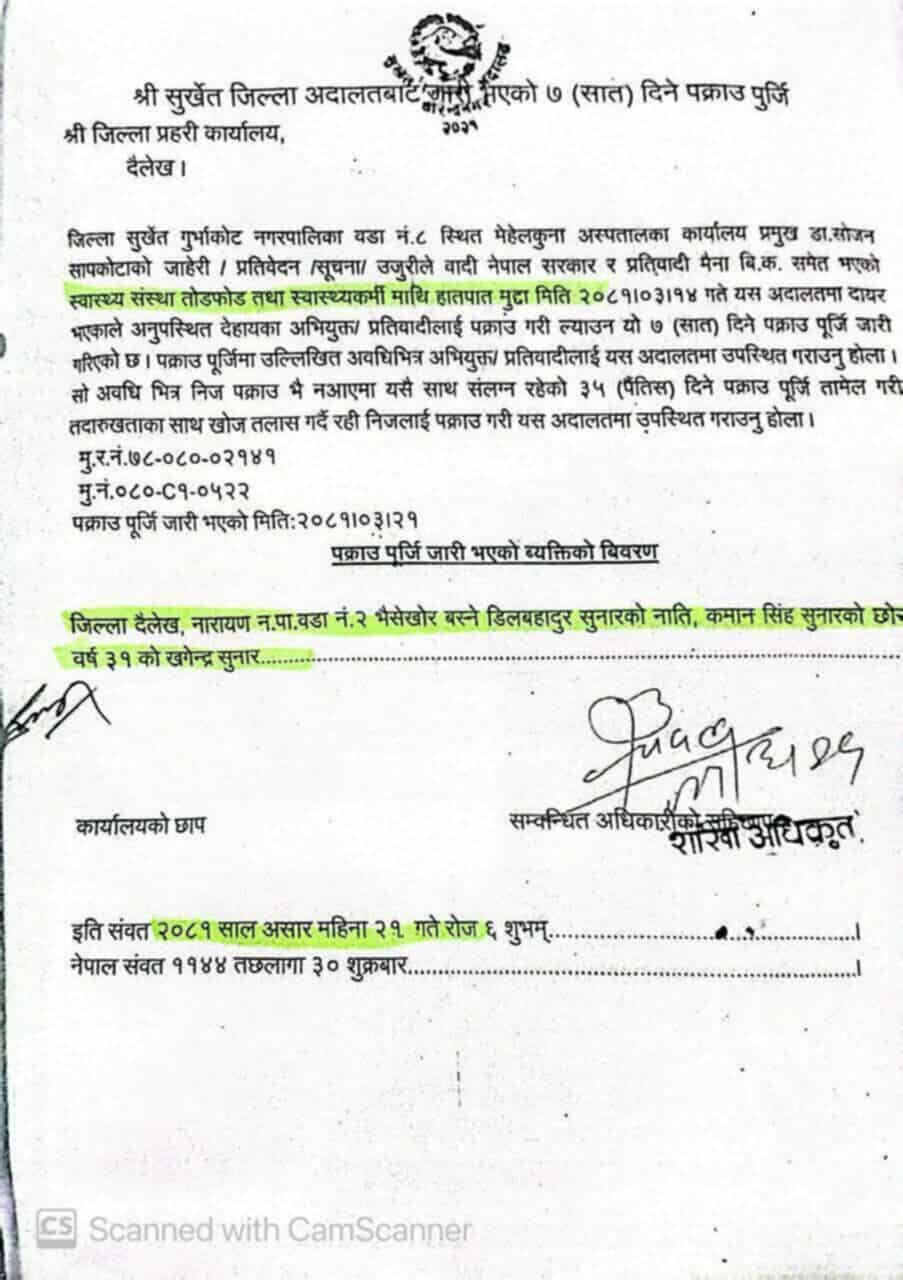 श्री सुर्खेत जिल्ला अदालतबाट जारी भएको ७ (सात) दिने पक्राउ पुर्जि
२०२१
श्री जिल्ला प्रहरी कार्यालय,
दैलेख ।
जिल्ला सुर्खेत गुर्भाकोट नगरपालिका वडा नं.८ स्थित मेहेलकुना अस्पतालका कार्यालय प्रमुख डा.सोजन
सापकोटाको जाहेरी / प्रतिवेदन /सूचना/ उजुरीले वादी नेपाल सरकार र प्रतिवादी मैना बि.क. समेत भएको
स्वास्थ्य संस्था तोडफोड तथा स्वास्थ्यकर्मी माथि हातपात मुद्दा मिति २०८१।०३।१४ गते यस अदालतमा दायर
भएकाले अनुपस्थित देहायका अभियुक्त/ प्रतिवादीलाई पक्राउ गरी ल्याउन यो ७ (सात) दिने पक्राउ पूर्जि जारी
गरिएको छ। पक्राउ पूर्जिमा उल्लिखित अवधिभित्र अभियुक्त/ प्रतिवादीलाई यस अदालतमा उपस्थित गराउनु होला।
सो अवधि भित्र निज पक्राउ भै नआएमा यसै साथ संलग्न रहेको ३५ (पैंतिस) दिने पक्राउ पूर्जि तामेल गरी
तदारुखताका साथ खोज तलास गर्दै रही निजलाई पक्राउ गरी यस अदालतमा उपस्थित गराउनु होला।
मु.र.नं.७८-०८०-०२१४१
मु.नं.०८०-C१-०५२२
पक्राउ पूर्जि जारी भएको मिति:२०८१।०३।२१
पक्राउ पूर्जि जारी भएको ब्यक्तिको बिवरण
जिल्ला दैलेख, नारायण न.पा.वडा नं.२ भैसेखोर बस्ने डिलबहादुर सुनारको नाति, कमान सिंह सुनारको छोर
वर्ष ३१ को खगेन्द्र सुनार..........
कार्यालयको छाप
सम्वन्धित अधिकारीको
शाखा अधिकृत
इति संवत २०८१ साल असार महिना २१ गते रोज ६ शुभम्..........।
नेपाल संवत ११४४ तछलागा ३० शुक्रबार..........।
CS Scanned with CamScanner